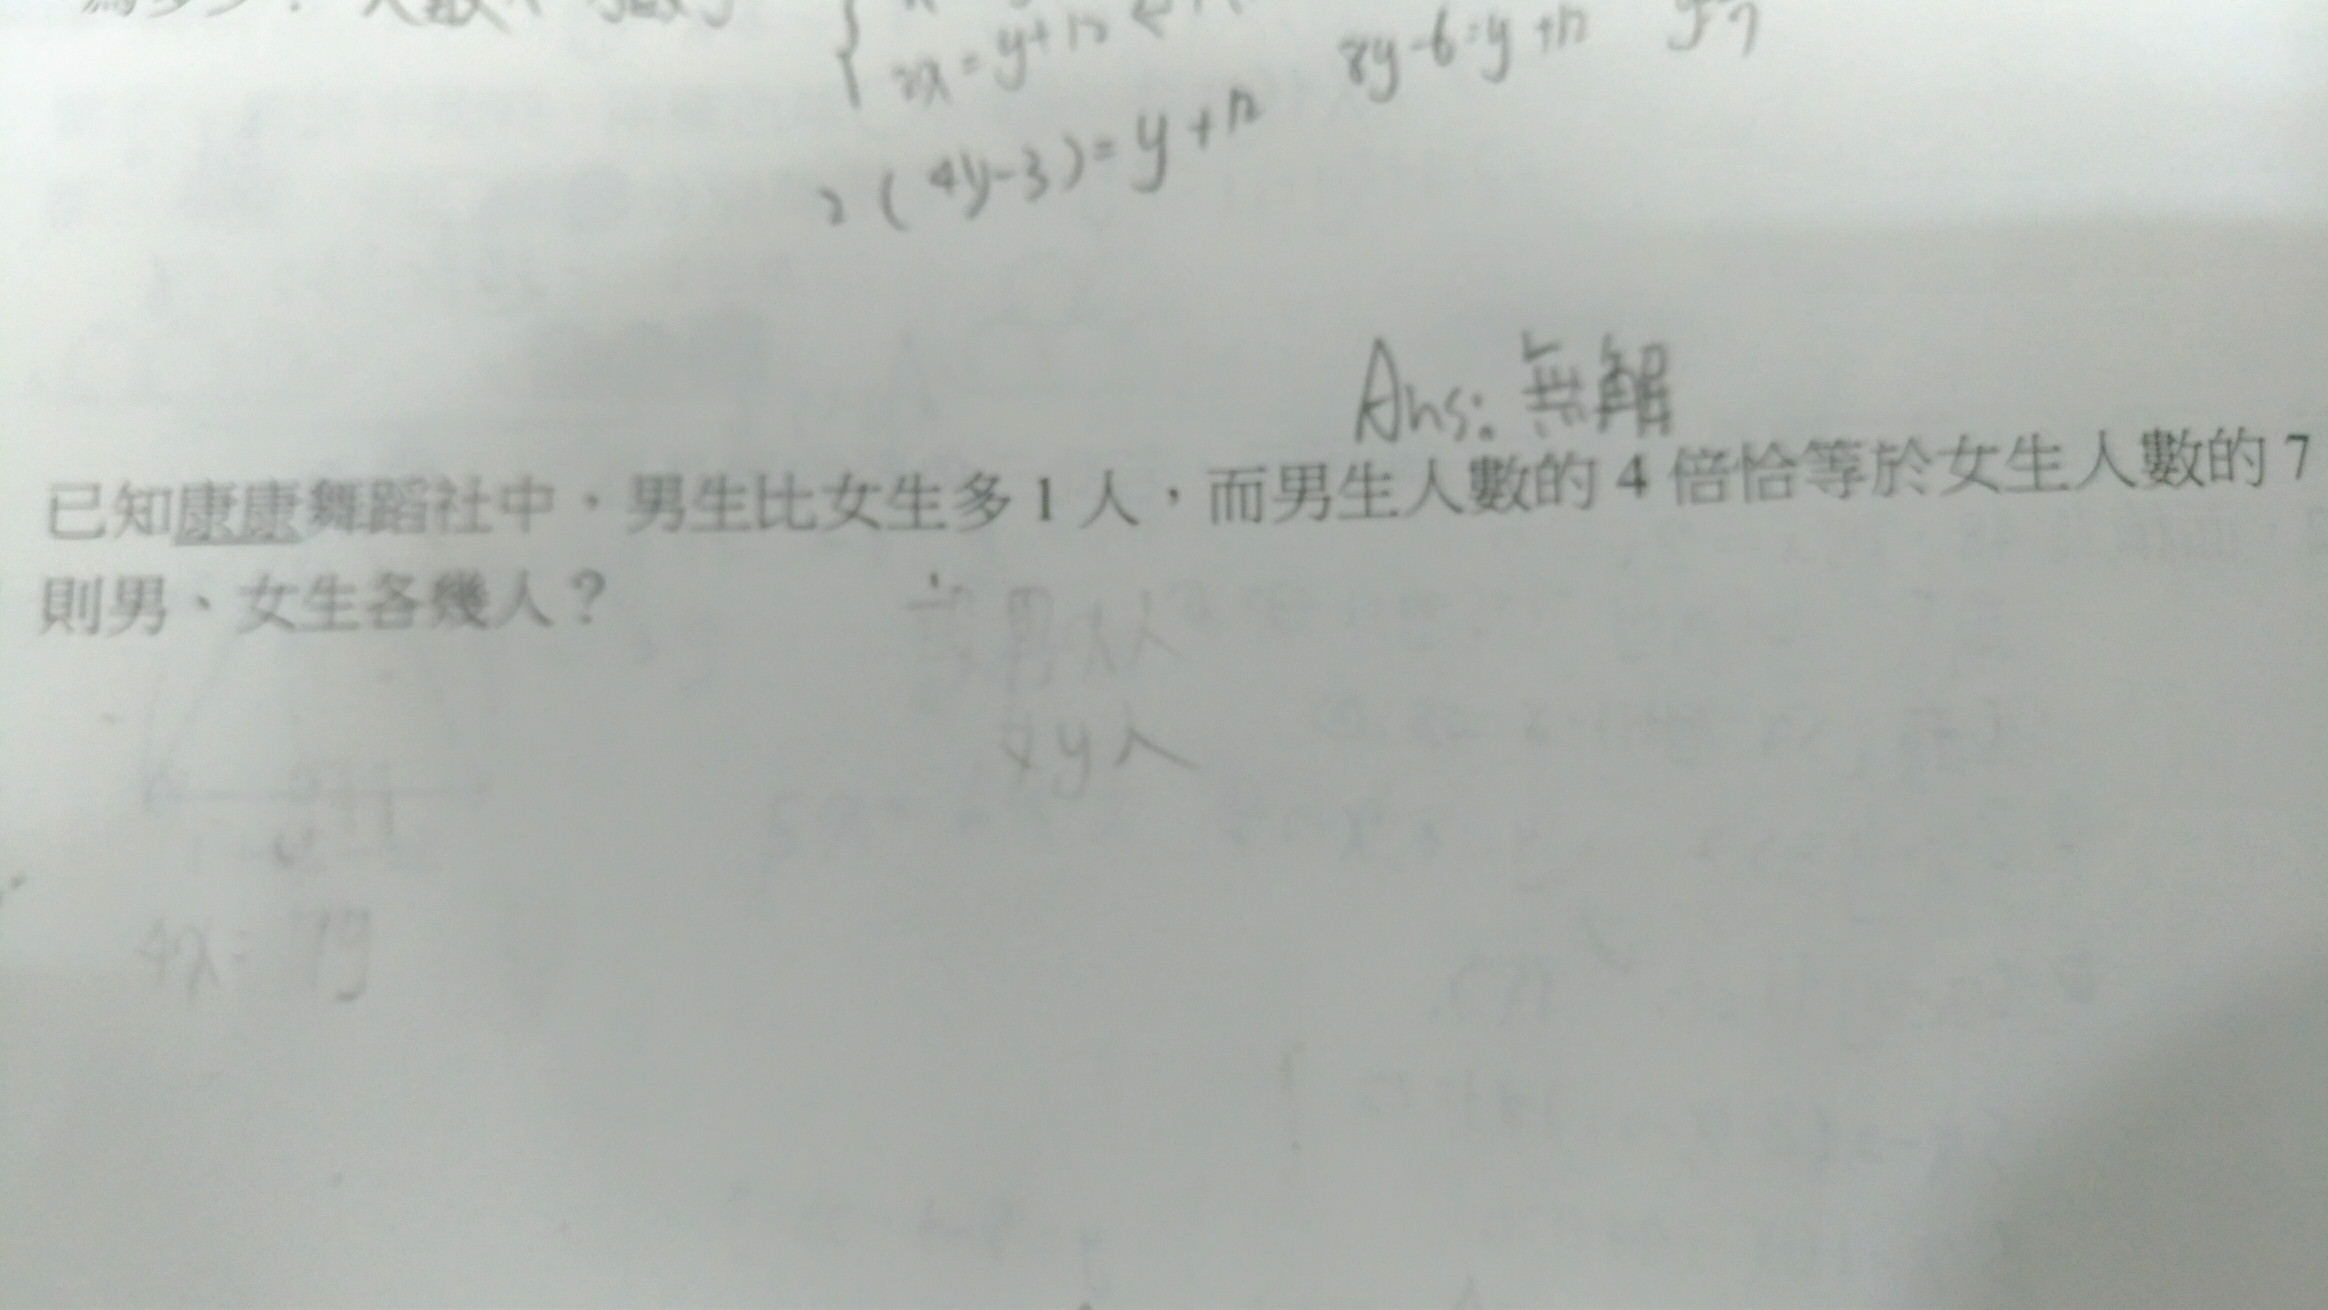 2x=y+12
8y-6=y+12
2(4y-3)=y+12
Ans: 無解
已知康康舞蹈社中，男生比女生多1人，而男生人數的4倍恰等於女生人數的7
則男、女生各幾人？
設男x人
女y人
4x=7y